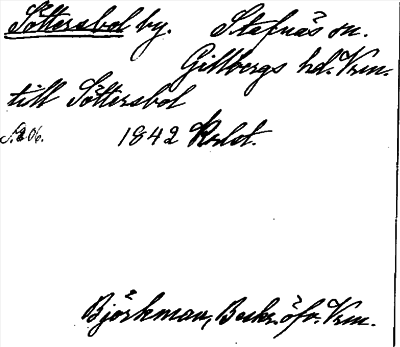 Söttersbol by. Stefnäs sn.
Gillbergs hd. Vrm.
till Söttersbol
1842 Krbt.
Björkman, Beskr. öfv. Vrm.